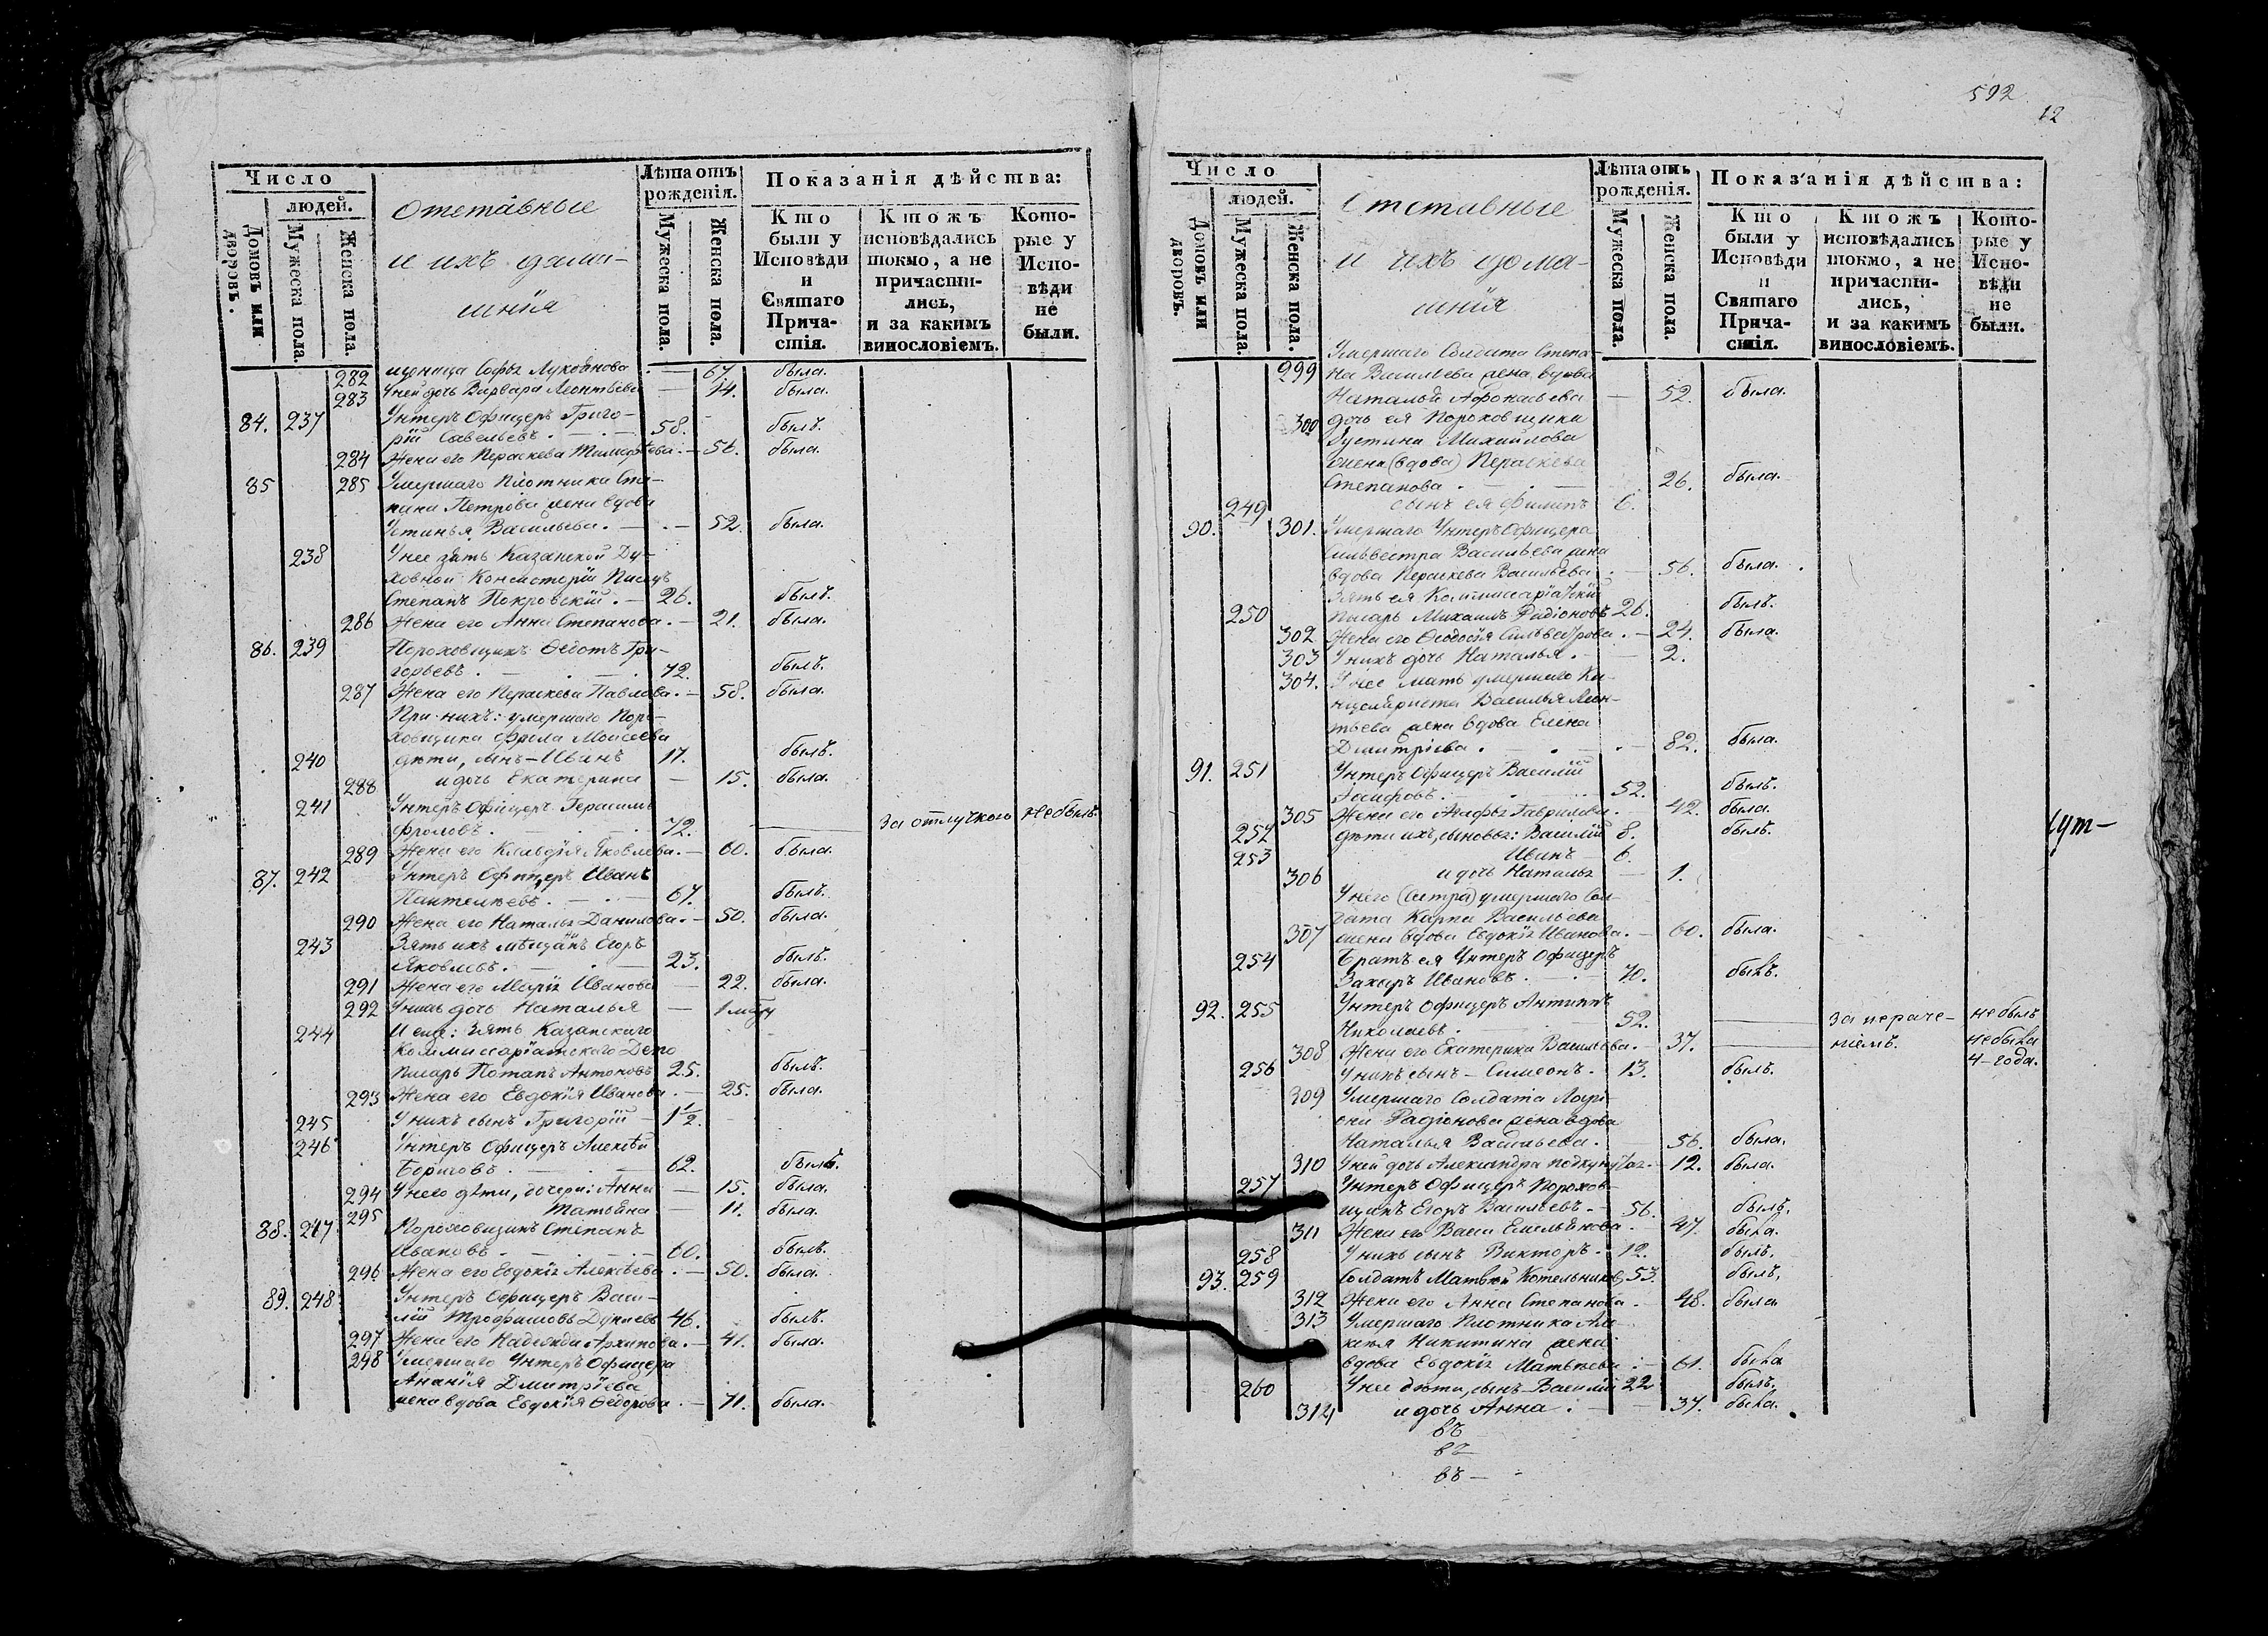 592
12
Число
людей.
Домовъ или дворовъ.
Мужеска пола.
Женска пола.
Отставные
и ихъ дома-
шнія
Лѣта отъ
рожденія.
Мужеска пола.
Женска пола.
Показанія дѣйства:
Кто
были у
Исповѣди
и
Святаго
Прича-
стія.
Ктожъ
исповѣдались
токмо, а не
причасти-
лись,
и за какимъ
винословіемъ.
Кото-
рые у
Испо-
вѣди
не
были.
282 щеница Софья Лукоянова — 67. была.
283 У ней дочь Варвара Леонтьева — 14. была.
84. 237 Унтеръ Офицеръ Григо-
рій Савельевъ. 58. былъ.
284 Жена его Параскева Тимофѣева. — 56. была.
85 285 Умершаго Плотника Сте-
пана Петрова жена вдова
Устинья Васильева. — 52. была.
238 У нее зять Казанской Ду-
ховной Консисторіи Писецъ
Степанъ Покровскій. — 26. былъ.
286 Жена его Анна Степанова. — 21. была.
86. 239 Пороховщикъ Ѳедотъ Гри-
горьевъ. 72. былъ.
287 Жена его Параскева Павлова. — 58. была.
При нихъ: умершаго Поро-
ховщика Фрола Моисеева
240 дѣти, сынъ — Иванъ 17. былъ.
288 и дочь Екатерина — 15. была.
241 Унтеръ Офицеръ Герасимъ
Фроловъ. 72. — за отлучкою небылъ.
289 Жена его Клавдія Яковлева. — 60. была.
87. 242 Унтеръ Офицеръ Иванъ
Пантелѣевъ. 67. былъ.
290 Жена его Наталья Данилова. — 50. была.
243 Зять ихъ мѣщанинъ Егоръ
Яковлевъ. 23. былъ.
291 Жена его Марія Иванова — 22. была.
292 У нихъ дочь Наталья —
244 И еще: зять Казанскаго
Коммиссаріатскаго Депо
Писарь Потапъ Антоновъ 25. былъ.
293 Жена его Евдокія Иванова. — 25. была.
245 У нихъ сынъ Григорій — 1½.
246 Унтеръ Офицеръ Алексѣй
Борисовъ. 62. былъ.
294 У него дѣти, дочери: Анна — 15. была.
295 Татьяна — 11. была.
88. 247 Пороховщикъ Степанъ
Ивановъ. 60. былъ.
296 Жена его Евдокія Алексѣева. — 50. была.
89. 248 Унтеръ Офицеръ Васи-
лій Трофимовъ 46. былъ.
297 Жена его Надежда Архипова. — 41. была.
248 Умершаго Унтеръ Офицера
Ананія Дмитріева
жена вдова Евдокія Ѳедорова. — 71. была.
Число
людей.
Домовъ или дворовъ.
Мужеска пола.
Женска пола.
Отставные
и ихъ дома-
шнія
Лѣта отъ
рожденія.
Мужеска пола.
Женска пола.
Показанія дѣйства:
Кто
были у
Исповѣди
и
Святаго
Прича-
стія.
Ктожъ
исповѣдались
токмо, а не
причасти-
лись,
и за какимъ
винословіемъ.
Кото-
рые у
Испо-
вѣди
не
были.
Умершаго Солдата Степа-
299 на Васильева жена вдова
Наталья Афонасьева — 52. была.
300 дочь ея Пороховщика
Устина Михайлова
жена (вдова) Параскева
Степанова. 26. была.
249 сынъ ея Филипъ 6.
90. 301. Умершаго Унтеръ Офицера
Сильвестра Васильева жена
вдова Параскева Васильева. — 56. была.
Зять ея Коммиссаріатскій
250 писарь Михаилъ Радіоновъ 26. былъ.
302 Жена его Ѳеодосія Сильвестрова. — 24. была.
303 У нихъ дочь Наталья. — 2.
304. У нее мать умершаго Ка-
нцеляриста Василья Леон-
тьева жена вдова Елена
Дмитріева. — 82. была.
91. 251 Унтеръ Офицеръ Василій
Іосифовъ. 52. былъ.
305 Жена его Агафья Гаврилова. 42. была.
252 дѣти ихъ, сыновья: Василій 8. былъ.
253 Иванъ — 6.
306 и дочь Наталья — 1.
У него (сестра) умершаго Сол-
дата Карпа Васильева
307 жена вдова Евдокія Иванова. — 60. была.
254 Братъ ея Унтеръ Офицеръ
Захаръ Ивановъ. 70. былъ.
92. 255 Унтеръ Офицеръ Антипъ
Николаевъ. 52. — за нераче- небылъ
308 Жена его Екатерина Васильева. — 37. — ніемъ. небыла
4-года.
256 У нихъ сынъ — Симеонъ. 13. былъ.
309 Умершаго Солдата
Радіонова жена вдова
Наталья Васильева. 56. была.
310 У ней дочь Александра — 12. была.
257 Унтеръ Офицеръ Порохов-
щикъ Егоръ Васильевъ. — 56. былъ.
311 Жена его Васса Емельянова. 47. была.
258 У нихъ сынъ Викторъ. 12. былъ.
93. 259 Солдатъ Матвей Котельниковъ 53. былъ,
312 Жена его Анна Степанова. — 48. была
313 Умершаго Плотника Але-
ксѣя Никитина жена
вдова Евдокія Матвѣева. — 61. была
260 У нее дѣти, сынъ — Василій 22 былъ.
314 и дочь Анна. — 37. была.
въ
въ
въ —